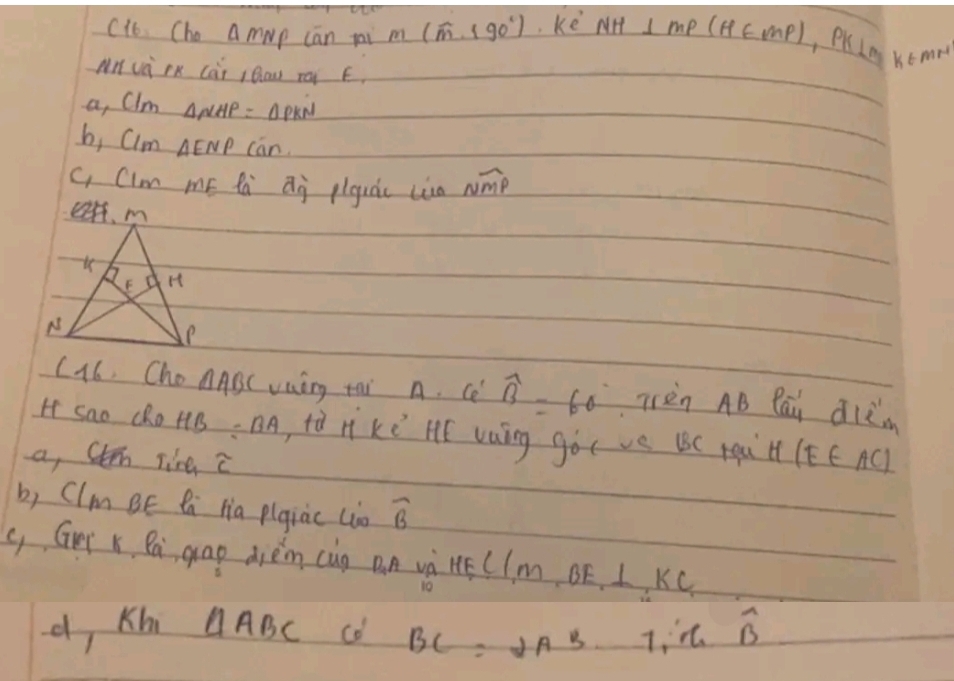 C16. Cho ΔMNP cân tại M (M̂ < 90°). Kẻ NH ⊥ MP (H ∈ MP), PK ⊥ MN K ∈ MN
NH và PK cắt nhau tại E.
a, C/m ΔNHP = ΔPKN
b, C/m ΔENP cân.
c, C/m ME là đg` p/giác của NMP̂
M
K
E
H
N
P
C16. Cho ΔABC vuông tại A. Có B̂ = 60°. Trên AB lấy điểm
H sao cho HB = BA, từ H kẻ HE vuông góc vs BC tại H (E ∈ AC)
a, Tính Ĉ
b, C/m BE là tia p/giác của B̂
c, Gọi K là giao điểm của BA và HE C/m BE ⊥ KC
10
d, Khi ΔABC có BC = 2AB. Tính B̂